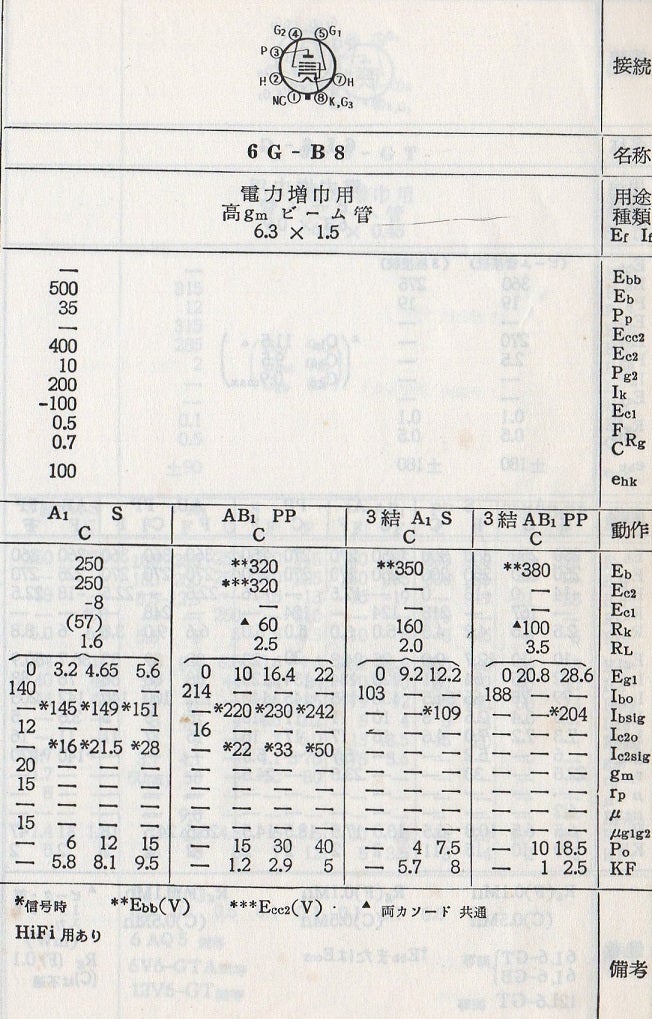 G2 ④ ⑤ G1
P ③
H ② ⑦ H
NC ① ⑧ K,G3
接続
6G-B8 名称
電力増巾用 用途
高gm ビーム管 種類
6.3 × 1.5 Ef If
— Ebb
500 Eb
35 Pp
— Ecc2
400 Ec2
10 Pg2
200 Ik
-100 Ec1
0.5 F Rg
0.7 C
100 ehk
A1 S AB1 PP 3結 A1 S 3結 AB1 PP 動作
C C C C
250 **320 **350 **380 Eb
250 ***320 — — Ec2
-8 — — — Ec1
(57) ▲ 60 160 ▲100 Rk
1.6 2.5 2.0 3.5 RL
0 3.2 4.65 5.6 0 10 16.4 22 0 9.2 12.2 0 20.8 28.6 Eg1
140 — — — 214 — — — 103 — — 188 — — Ibo
— *145 *149 *151 — *220 *230 *242 — — *109 — — *204 Ibsig
12 — — — 16 — — — — — — — — — Ic2o
— *16 *21.5 *28 — *22 *33 *50 — — — — — — Ic2sig
20 — — — — — — — — — — — — — gm
15 — — — — — — — — — — — — — rp
— — — — — — — — — — — — — — μ
15 — — — — — — — — — — — — — μg1g2
— 6 12 15 — 15 30 40 — 4 7.5 — 10 18.5 Po
— 5.8 8.1 9.5 — 1.2 2.9 5 — 5.7 8 — 1 2.5 KF
*信号時 **Ebb(V) ***Ecc2(V) · ▲ 両カソード 共通
HiFi 用あり
備考